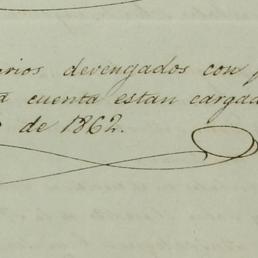 arios devengados con
a cuenta estan cargad
de 1862.